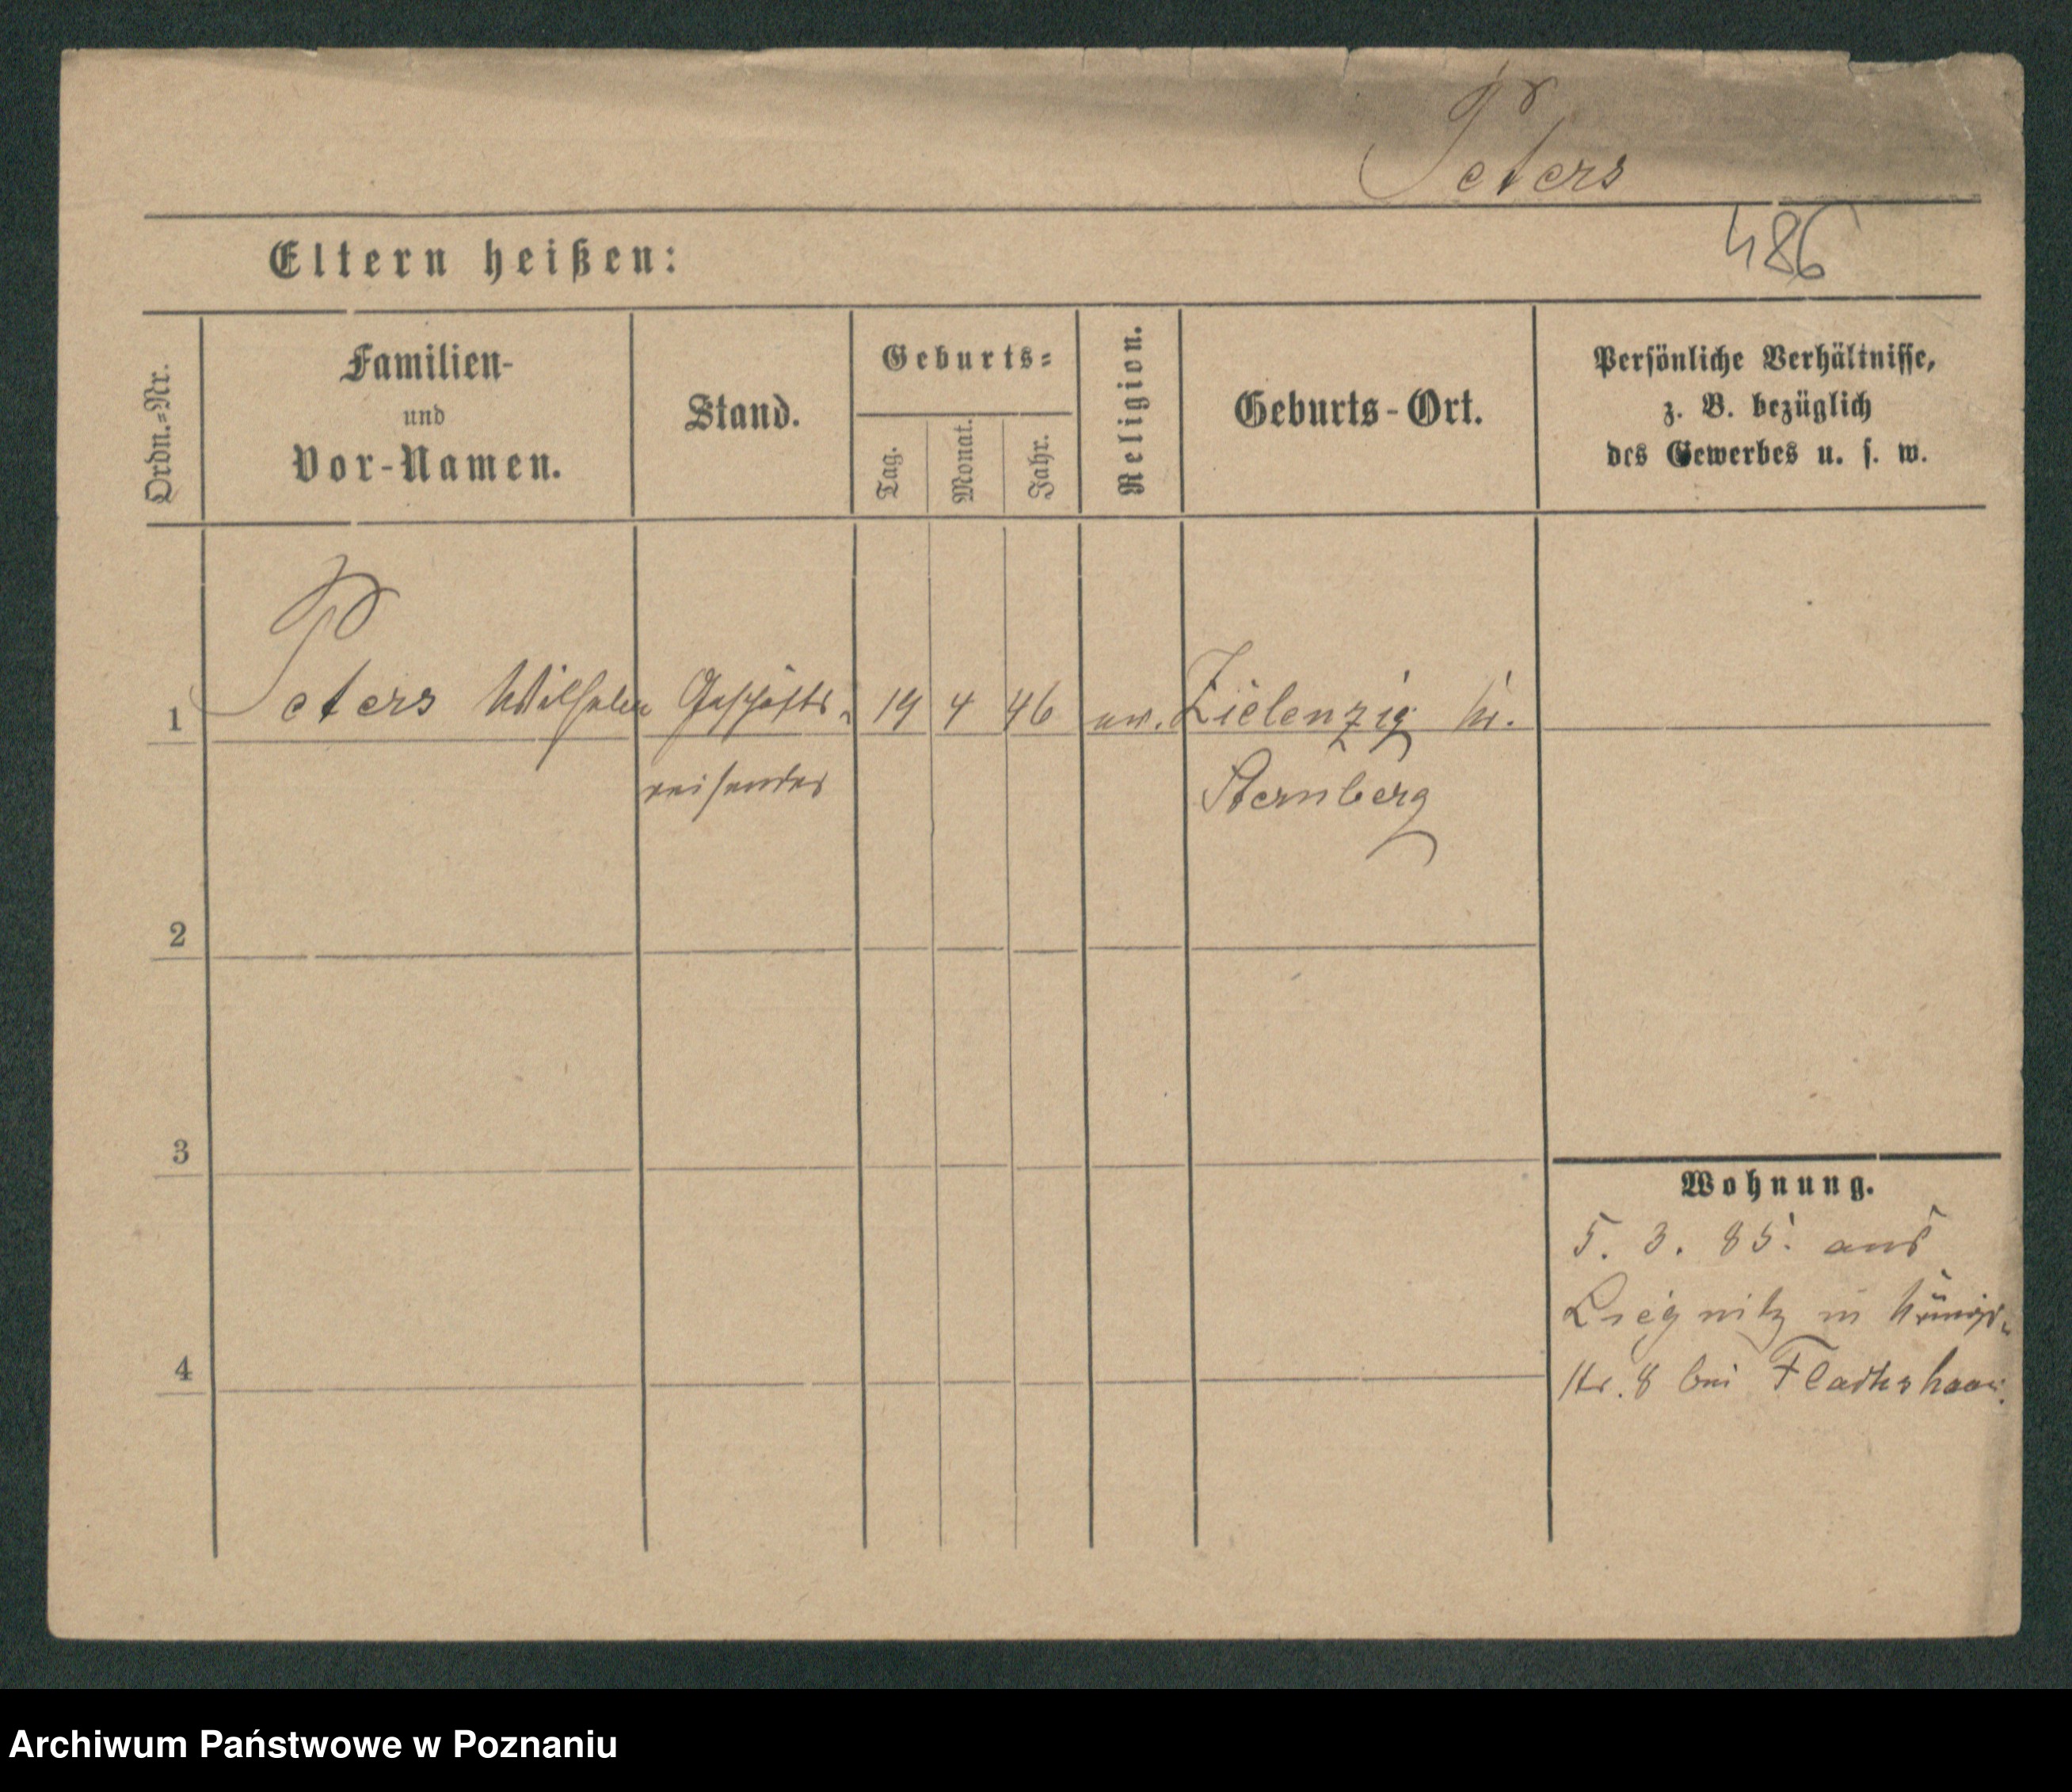 Peters
486
Eltern heißen:
Ordn.-Nr.
Familien-
und
Vor-Namen.
Stand.
Geburts-
Tag.
Monat.
Jahr.
Religion.
Geburts-Ort.
Persönliche Verhältnisse,
z. B. bezüglich
des Gewerbes u. s. w.
1 Peters Wilhelm Geschäfts- 19 4 46 ev. Zielenzig Kr.
reisender Sternberg
2
3
4
Wohnung.
5. 3. 85. aus
Liegnitz in Königs-
str. 8 bei
Archiwum Państwowe w Poznaniu